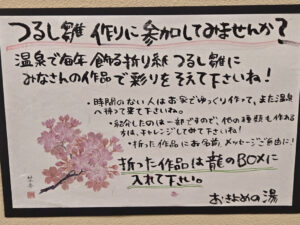 つるし雛作りに参加してみませんか？
温泉で毎年飾る折り紙つるし雛に
みなさんの作品で彩りをそえて下さいね！
・時間のない人はお家でゆっくり作って、また温泉
へ持って来て下さいね。
・紹介したのは一部ですので、他の種類も作れる
方は、チャレンジしてみて下さいね！
・折った作品にお名前、メッセージご自由に！
折った作品は龍のBOXに
入れて下さい。
おきよめの湯